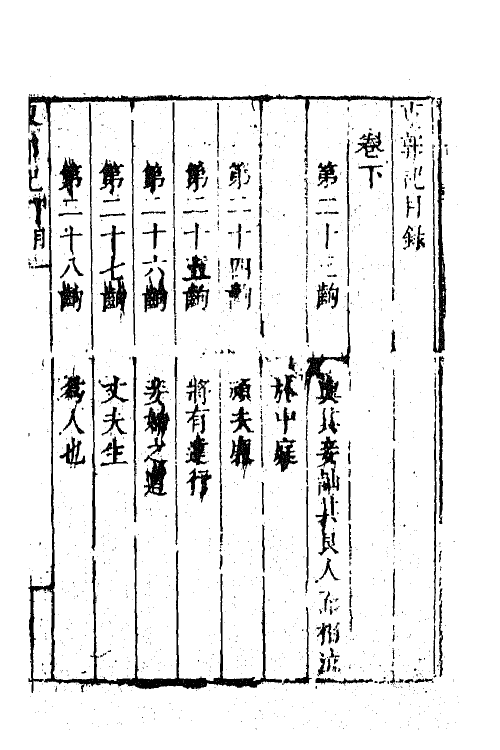 東郭記目錄
卷下
第二十三齣 與其妾訕其良人而相泣
於中庭
第二十四齣 頑夫廉
第二十五齣 將有遠行
第二十六齣 妾婦之道
第二十七齣 丈夫生
第二十八齣 為人也